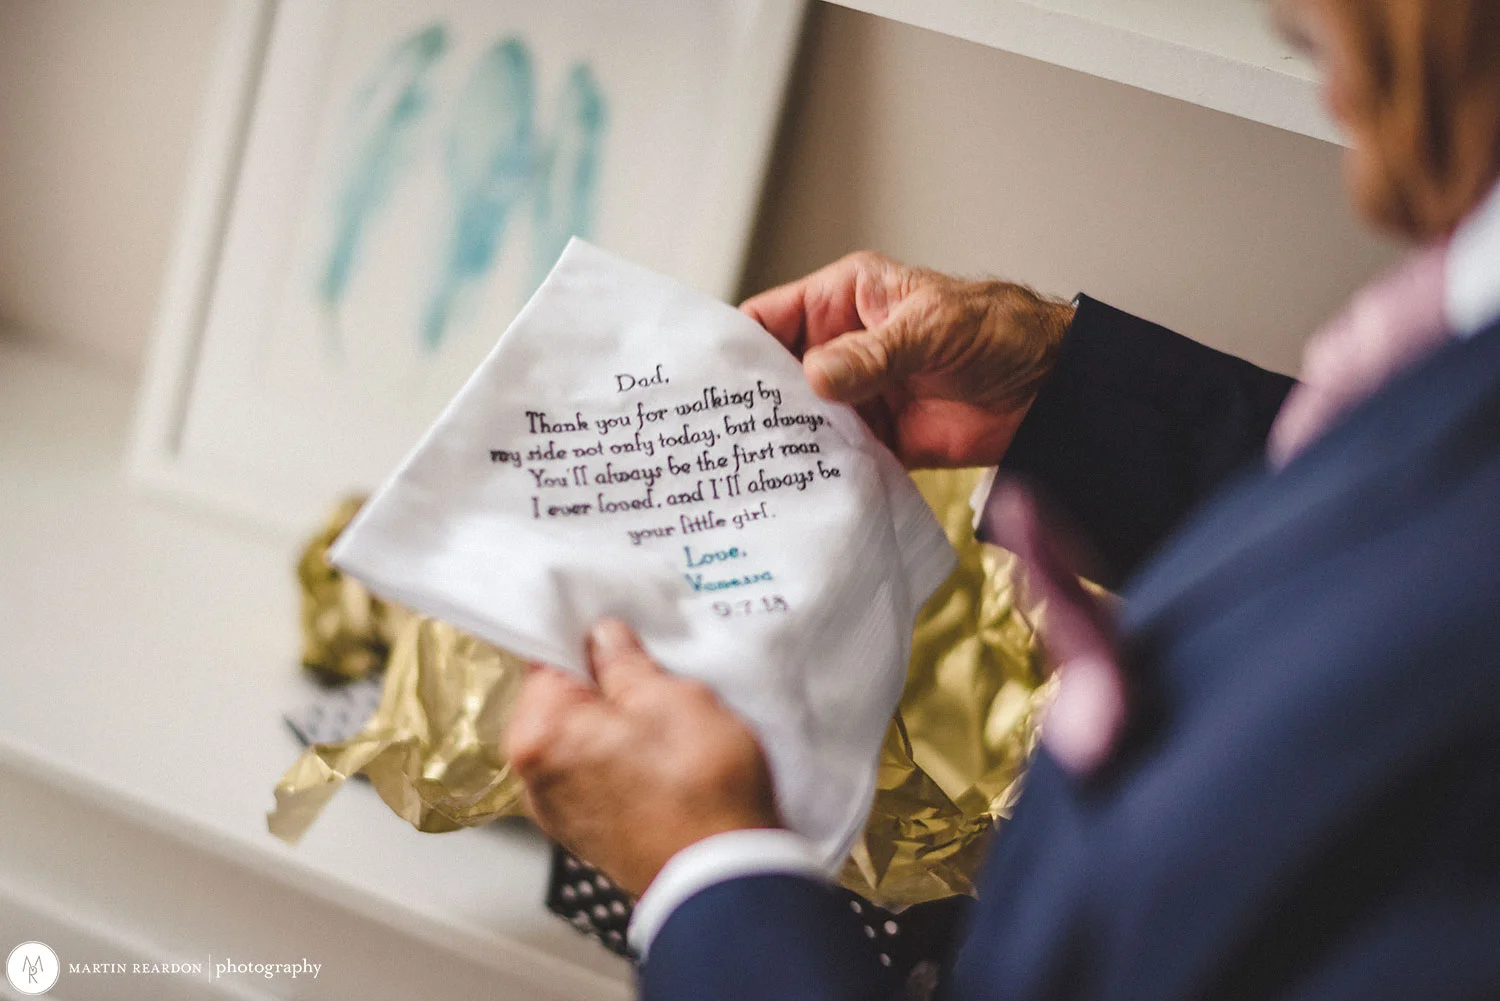 Dad,
Thank you for walking by
my side not only today, but always.
You'll always be the first man
I ever loved, and I'll always be
your little girl.
Love,
Vanessa
9.7.18
MR
MARTIN REARDON | photography